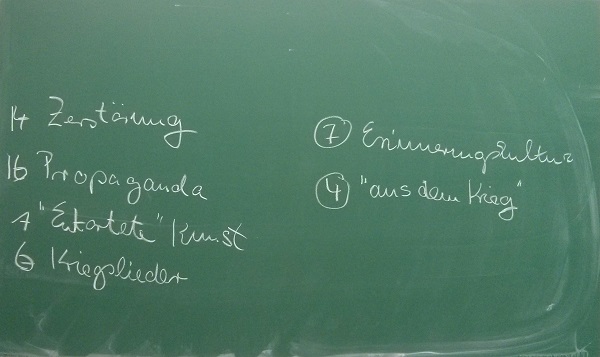 14 Zerstörung
16 Propaganda
1 "Entartete" Kunst
6 Kriegslieder
7 Erinnerungskultur
4 "aus dem Krieg"